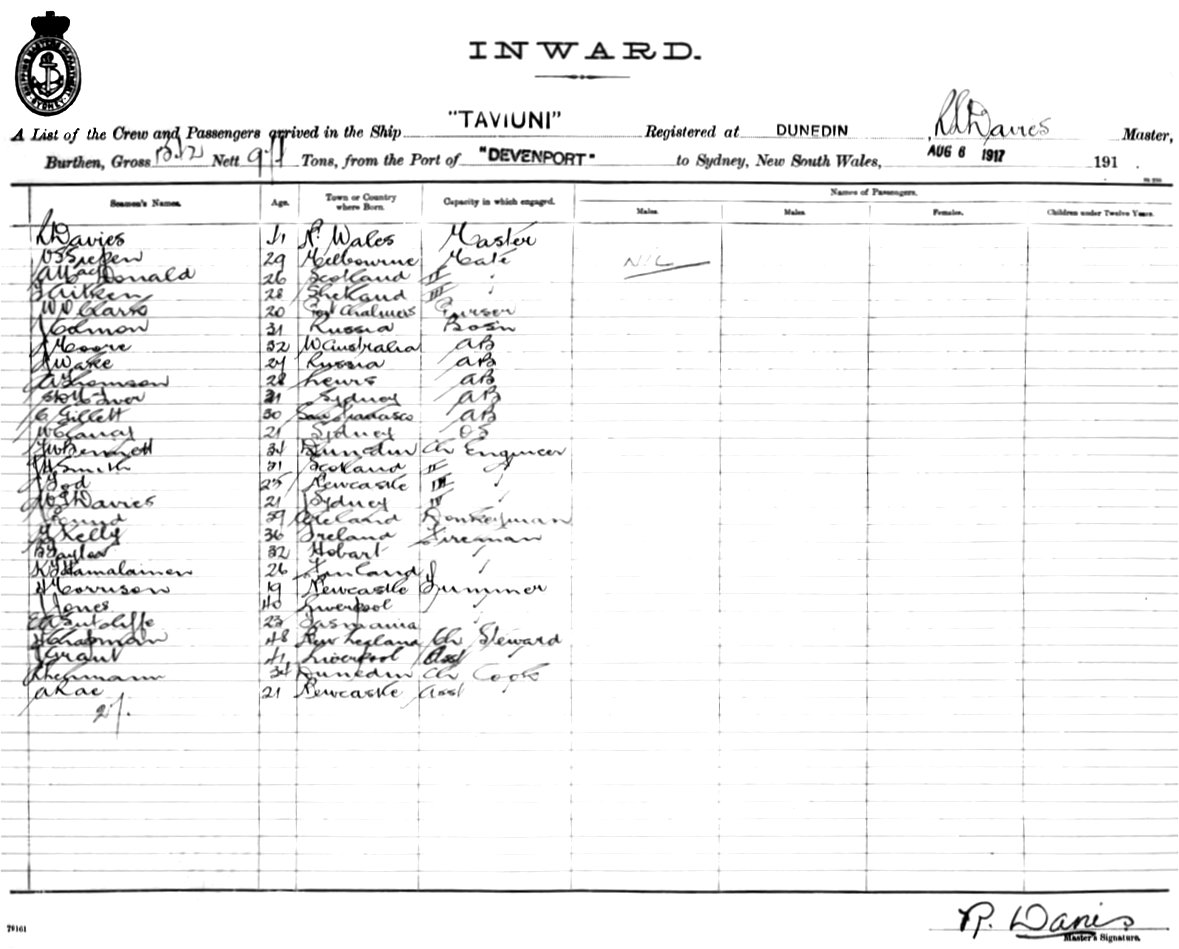 SHIPPING MASTERS DEPARTMENT SYDNEY
INWARD.
A List of the Crew and Passengers arrived in the Ship "TAVIUNI" Registered at DUNEDIN R Davies Master,
Burthen, Gross Nett Tons, from the Port of "DEVENPORT" to Sydney, New South Wales, AUG 6 1917 191 .
Seamen's Names. Age. Town or Country where Born. Capacity in which engaged. Names of Passengers.
Males. Males. Females. Children under Twelve Years.
R Davies 41 N. Wales Master
29 Melbourne Mate NIL
A MacDonald 26 Scotland II "
Aitken 28 Shetland III "
W D Clark 20 Port Chalmers Purser
31 Russia Bosn
Moore 32 W Australia AB
Wake 27 Russia AB
A Thomson 28 Lewis AB
31 Sydney AB
C Gillett 30 San Francisco AB
W Clancy 21 Sydney OS
F W Bennett 34 Dunedin Ch Engineer
Smith 31 Scotland II "
25 Newcastle III "
Davies 21 Sydney IV "
39 Ireland Donkeyman
Kelly 36 Ireland Fireman
Taylor 32 Hobart "
Hamalainen 26 Finland "
Morrison 19 Newcastle Trimmer
Jones 40 Liverpool "
Sutcliffe 23 Tasmania "
Chapman 48 New Zealand Ch Steward
Grant 41 Liverpool Asst "
34 Dunedin Ch Cook
A Rae 21 Newcastle Asst "
27.
79161
R. Davies
Master's Signature.